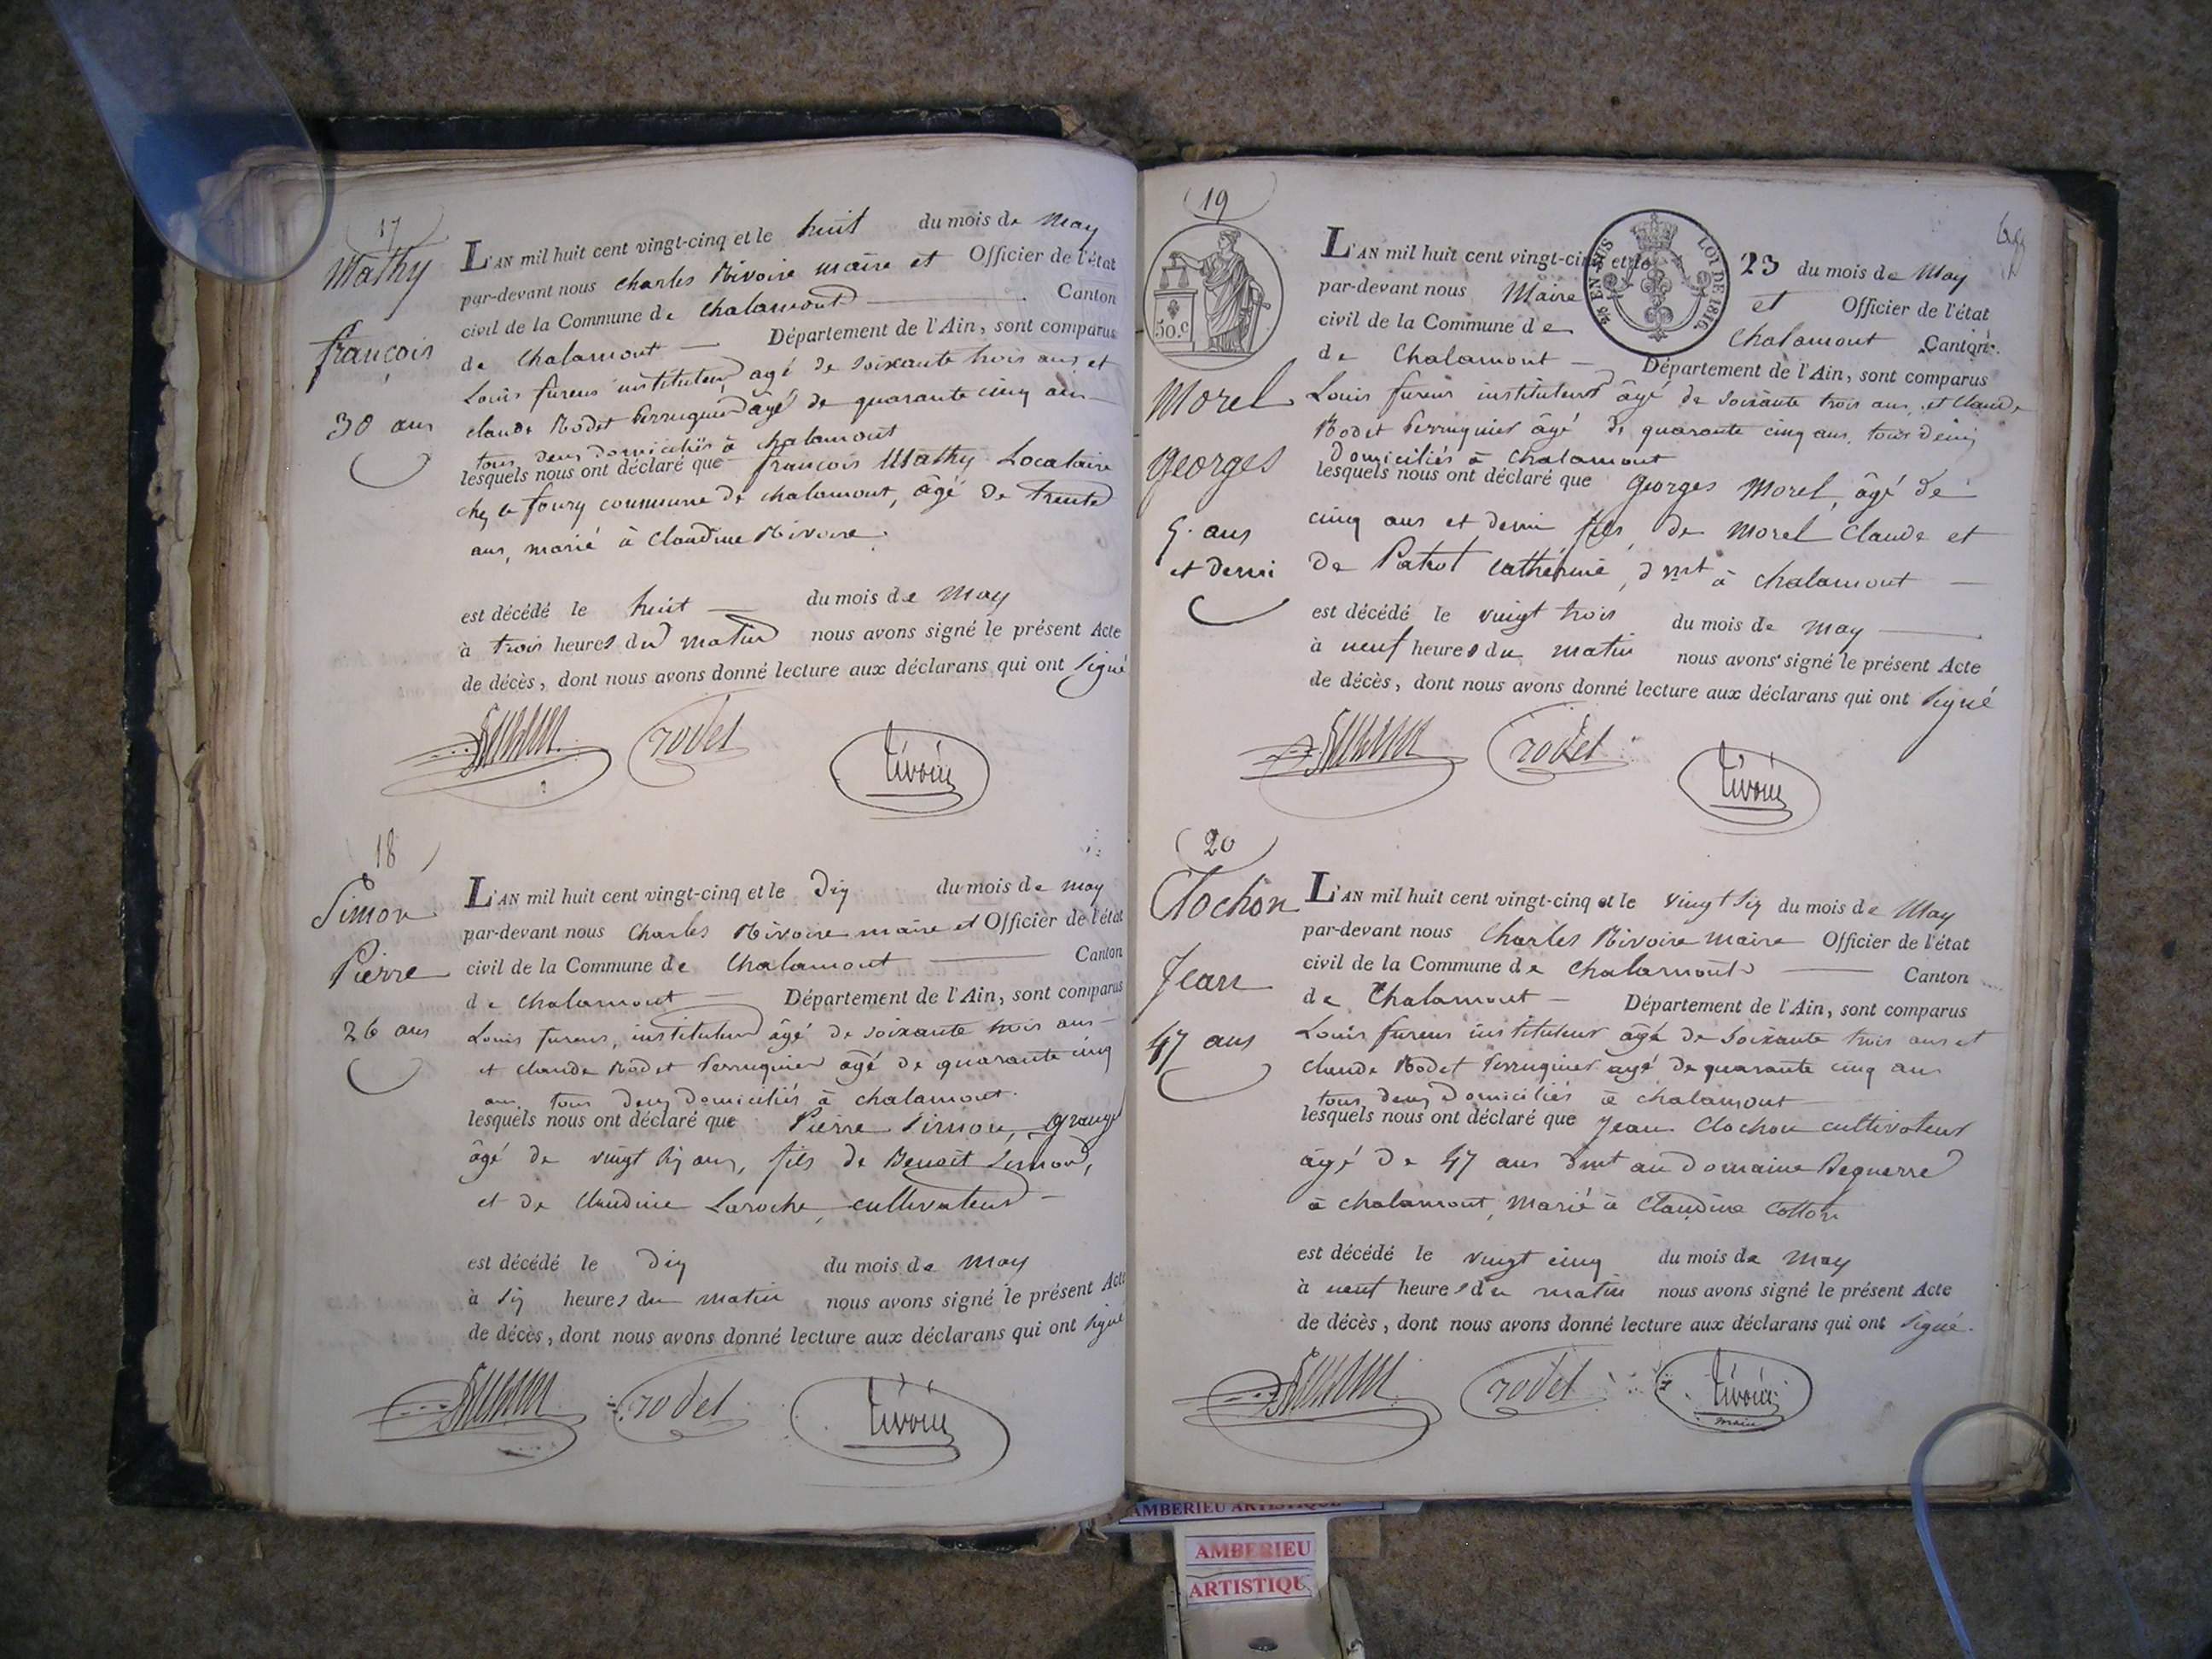 17
Mathy
françois
30 ans
L'AN mil huit cent vingt-cinq et le huit du mois de May
par-devant nous Charles Rivoire maire et Officier de l'état
civil de la Commune de Chalamont Canton
de Chalamont Département de l'Ain, sont comparus
Louis fureus instituteur agé de soixante trois ans et
claude Rodet Perruquier âgé de quarante cinq ans
tous deux domiciliés à chalamont
lesquels nous ont déclaré que françois Mathy Locataire
chez commune de chalamont, âgé de trente
ans, marié à Claudine Rivoire.
est décédé le huit du mois de May
à trois heures du matin nous avons signé le présent Acte
de décès, dont nous avons donné lecture aux déclarans qui ont signé
rodet
rivoire
18
Simon
Pierre
26 ans
L'AN mil huit cent vingt-cinq et le dix du mois de may
par-devant nous Charles Rivoire maire et Officier de l'état
civil de la Commune de Chalamont Canton
de Chalamont Département de l'Ain, sont comparus
Louis fureus, instituteur âgé de soixante trois ans
et claude Rodet Perruquier âgé de quarante cinq
ans tous deux domiciliés à chalamont.
lesquels nous ont déclaré que Pierre Simon,
âgé de vingt six ans, fils de Benoit Simon,
et de Claudine Laroche, cultivateurs
est décédé le dix du mois de May
à six heures du matin nous avons signé le présent Acte
de décès, dont nous avons donné lecture aux déclarans qui ont signé
rodet
rivoire
19
30.c
EN SUS
LOI DE 1816
Morel
georges
5 ans
et demi
L'AN mil huit cent vingt-cinq et le 23 du mois de May
par-devant nous Maire et Officier de l'état
civil de la Commune de Chalamont Canton
de Chalamont Département de l'Ain, sont comparus
Louis fureus instituteur âgé de soixante trois ans, et Claude
Rodet Perruquier âgé de quarante cinq ans, tous deux
domiciliés à chalamont
lesquels nous ont déclaré que georges Morel, âgé de
cinq ans et demi fils de Morel Claude et
de Patrot cathérine, dmt à chalamont
est décédé le vingt trois du mois de May
à neuf heures du matin nous avons signé le présent Acte
de décès, dont nous avons donné lecture aux déclarans qui ont signé
rodet
rivoire
20
Clochon
Jean
47 ans
L'AN mil huit cent vingt-cinq et le vingt six du mois de May
par-devant nous Charles Rivoire Maire Officier de l'état
civil de la Commune de Chalamont Canton
de Chalamont Département de l'Ain, sont comparus
Louis fureus instituteur âgé de soixante trois ans et
claude Rodet Perruquier agé de quarante cinq ans
tous deux domiciliés à chalamont
lesquels nous ont déclaré que Jean Clochon cultivateur
âgé de 47 ans dmt au domaine Beguerre
à chalamont, Marié à Claudine Cotton
est décédé le vingt cinq du mois de May
à neuf heures du matin nous avons signé le présent Acte
de décès, dont nous avons donné lecture aux déclarans qui ont signé.
rodet
rivoire
maire
AMBERIEU ARTISTIQUE
AMBERIEU
ARTISTIQU